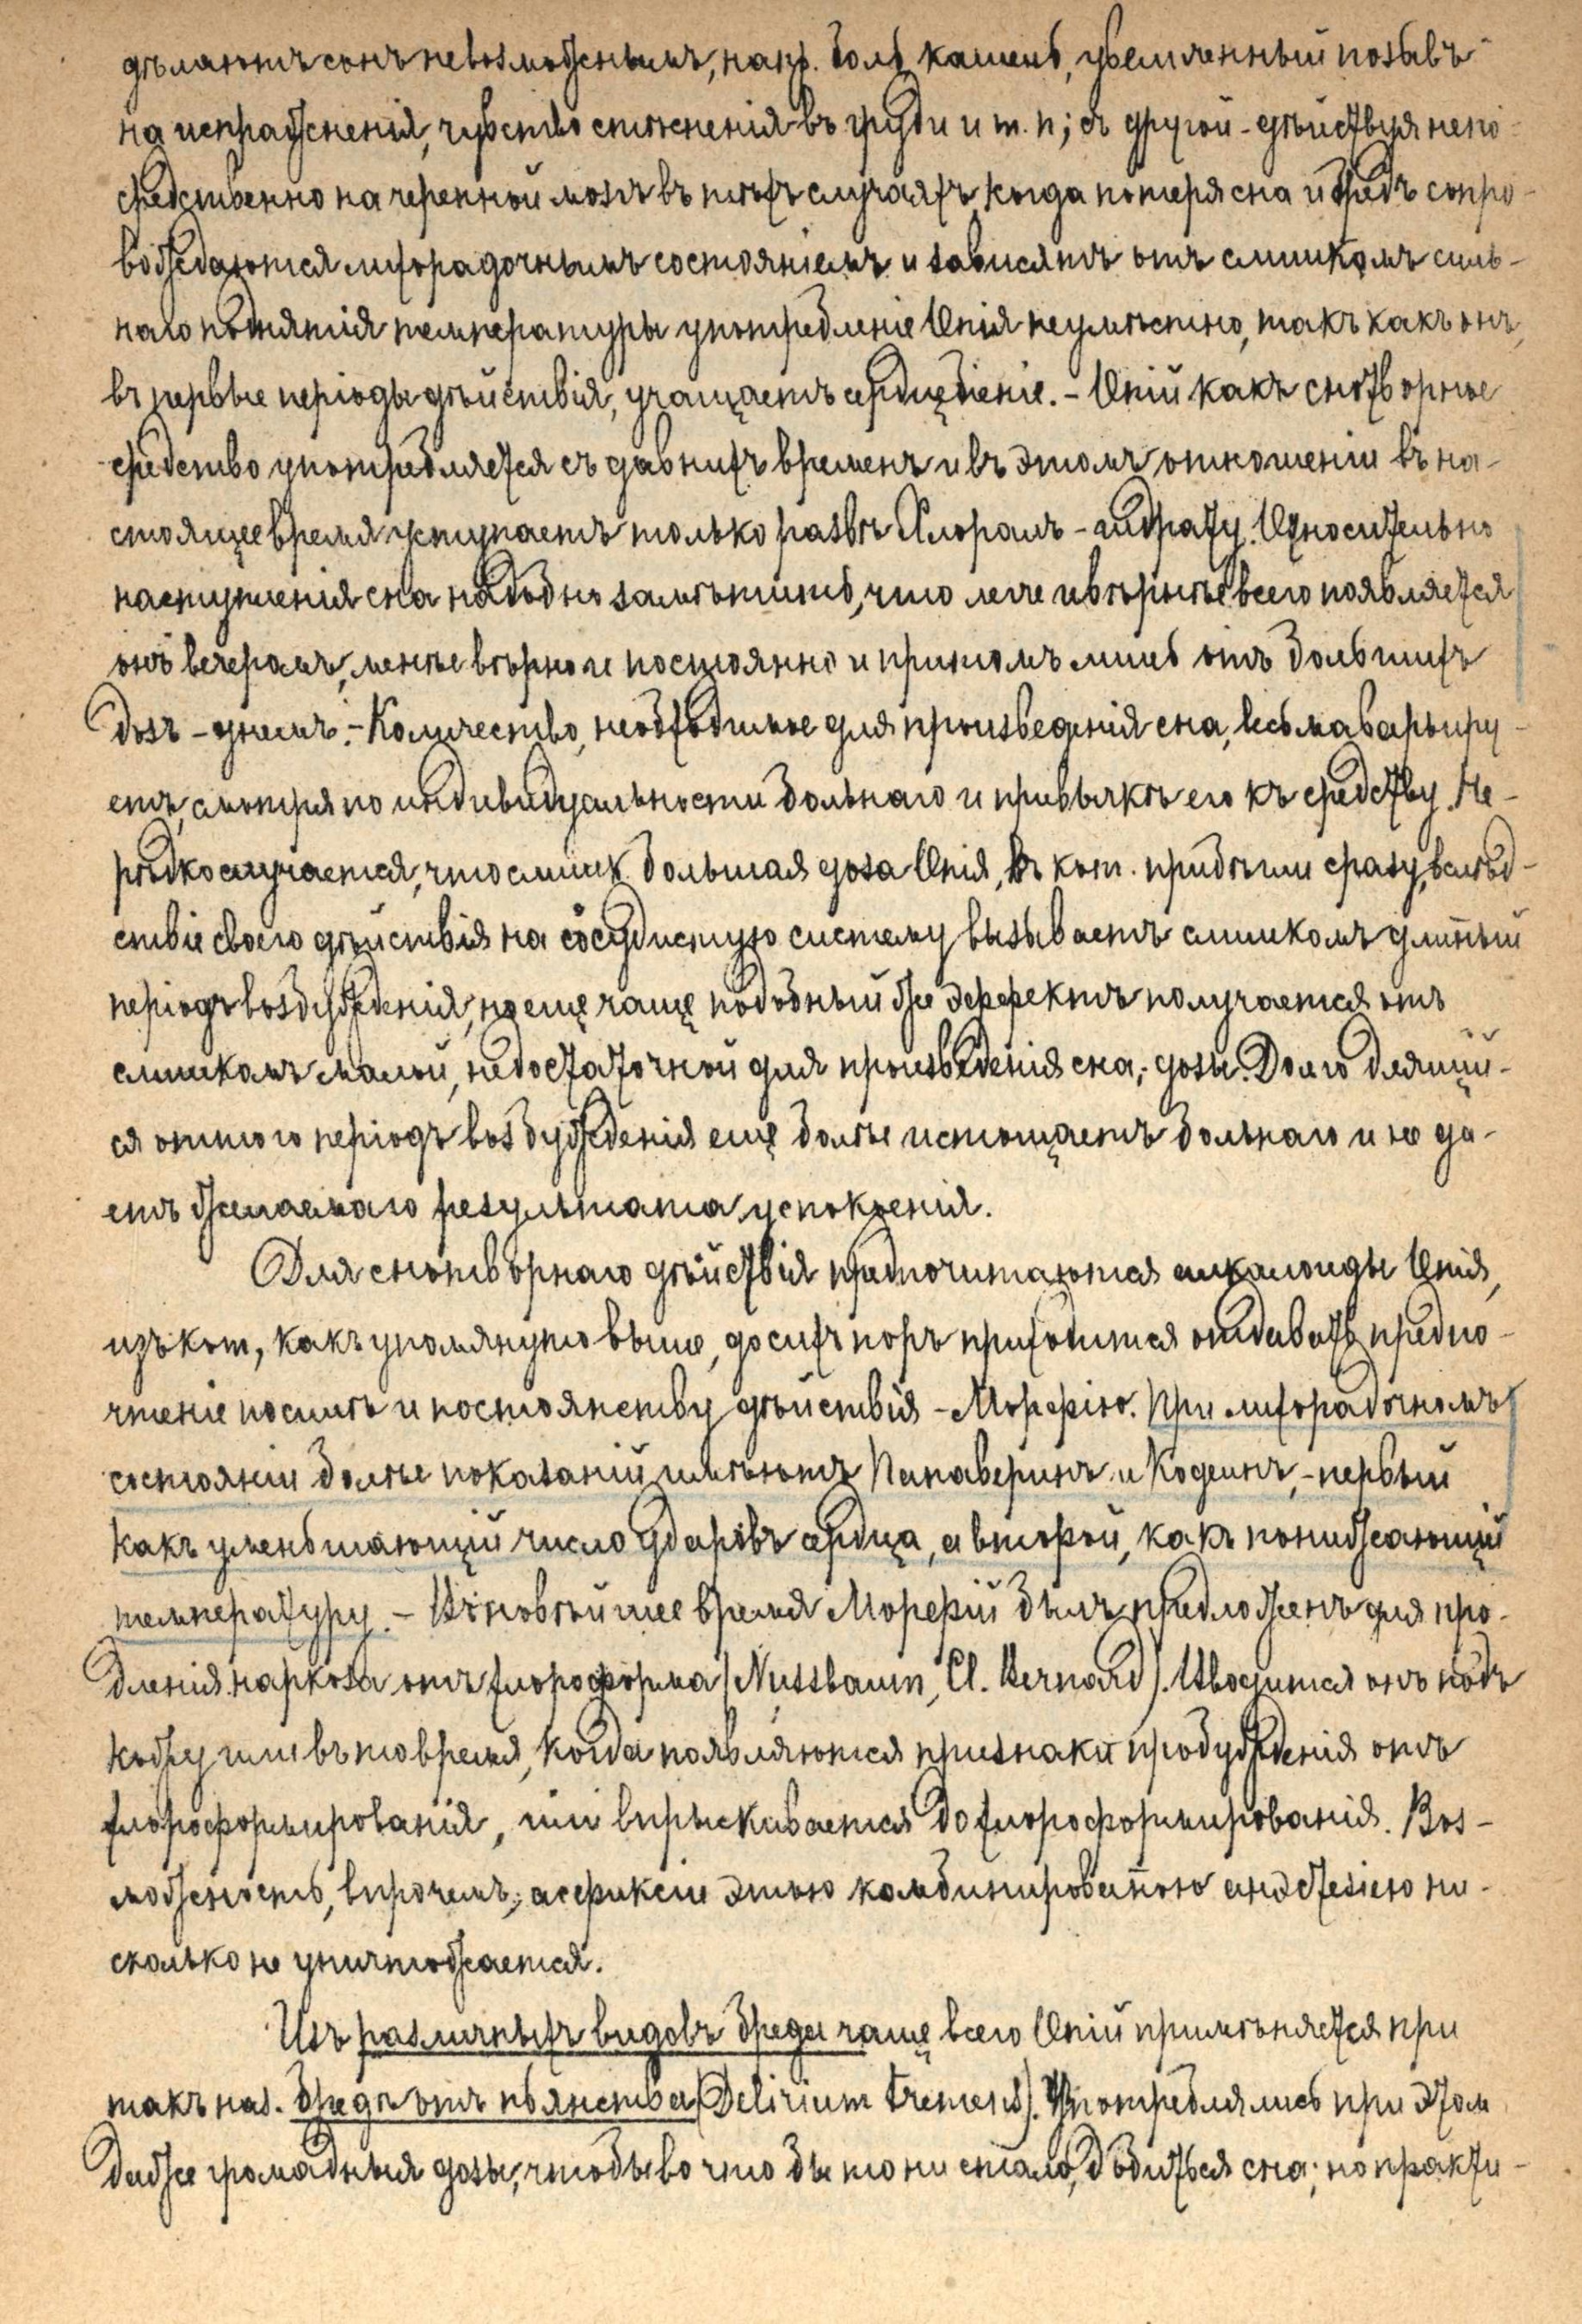 дѣлаютъ сонъ невозможнымъ, напр. боль, кашель, усиленный позывъ
на испражненія, чувство стѣсненія въ груди и т. п; съ другой - дѣйствуя непо-
средственно на черепной мозгъ въ тѣхъ случаяхъ, когда потеря сна и бредъ сопро-
вождаются лихорадочнымъ состояніемъ и зависятъ отъ слишкомъ силь-
наго поднятія температуры употребленіе Опія неумѣстно, такъ какъ онъ,
въ первые періоды дѣйствія, учащаетъ сердцебіеніе. - Опій какъ снотворное
средство употребляется съ давнихъ временъ и въ этомъ отношеніи въ на-
стоящее время уступаетъ только развѣ Хлоралъ - гидрату. Относительно
наступленія сна надобно замѣтить, что легче и вѣрнѣе всего появляется
онъ вечеромъ, менѣе вѣрно и постоянно и притомъ лишь отъ большихъ
дозъ - днемъ. - Количество, необходимое для произведенія сна, весьма варьиру-
етъ, смотря по индивидуальности больнаго и привычкѣ его къ средству. Не-
рѣдко случается, что слишк. большая доза Опія, къ кот. прибѣгли сразу, вслѣд-
ствіе своего дѣйствія на сосудистую систему вызываетъ слишкомъ длинный
періодъ возбужденія, но еще чаще подобный же эффектъ получается отъ
слишкомъ малой, недостаточной для произведенія сна, дозы. Долго длящій-
ся оттого періодъ возбужденія еще болѣе истощаетъ больнаго и не да-
етъ желаемаго результата успокоенія.
Для снотворнаго дѣйствія предпочитаются алкалоиды Опія,
изъ кот, какъ упомянуто выше, до сихъ поръ приходится отдавать предпо-
чтеніе по силѣ и постоянству дѣйствія - Морфію. При лихорадочномъ
состояніи болѣе показаній имѣютъ Папаверинъ и Кодеинъ, - первый
какъ уменьшающій число ударовъ сердца, а второй, какъ понижающій
температуру. - Въ новѣйшее время Морфій былъ предложенъ для про-
дленія наркоза отъ хлороформа (Nussbaum, Cl. Bernard). Вводится онъ подъ
кожу или въ то время, когда появляются признаки пробужденія отъ
хлороформированія, или впрыскивается до хлороформированія. Воз-
можность, впрочемъ, асфиксіи этою комбинированною анэстезіею ни-
сколько не уничтожается.
Изъ различныхъ видовъ бреда чаще всего Опій примѣняется при
такъ наз. бредѣ отъ пьянства (Delirium tremens). Употреблялись при этом
даже громадныя дозы, чтобы во что бы то ни стало, добиться сна; но практи-